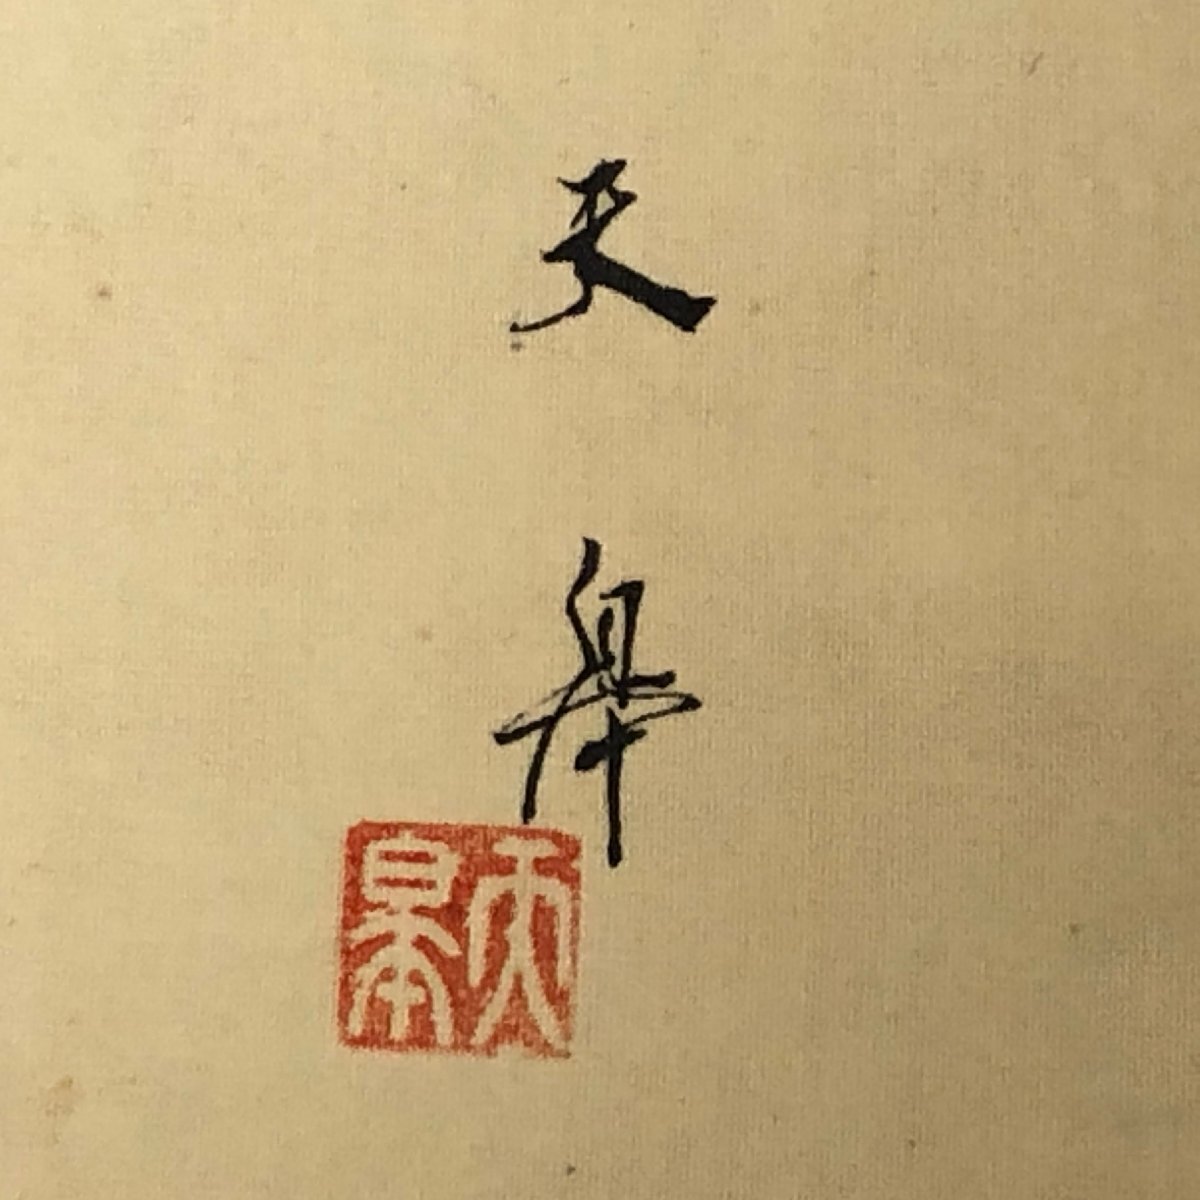 天皐
天皐